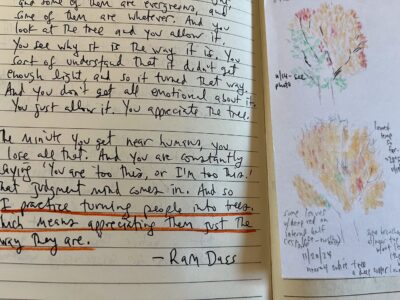 and some of them are evergreens, and
some of them are whatever. And you
look at the tree and you allow it.
You see why it is the way it is. You
sort of understand that it didn't get
enough light, and so it turned that way.
And you don't get all emotional about it.
You just allow it. You appreciate the tree.
The minute you get near humans, you
lose all that. And you are constantly
saying 'You are too this, or I'm too this.'
That judgment mind comes in. And so
I practice turning people into trees.
Which means appreciating them just the
way they are.
— Ram Dass
11/14 - see
photo
some leaves
deep red on
internal half
11/20/24